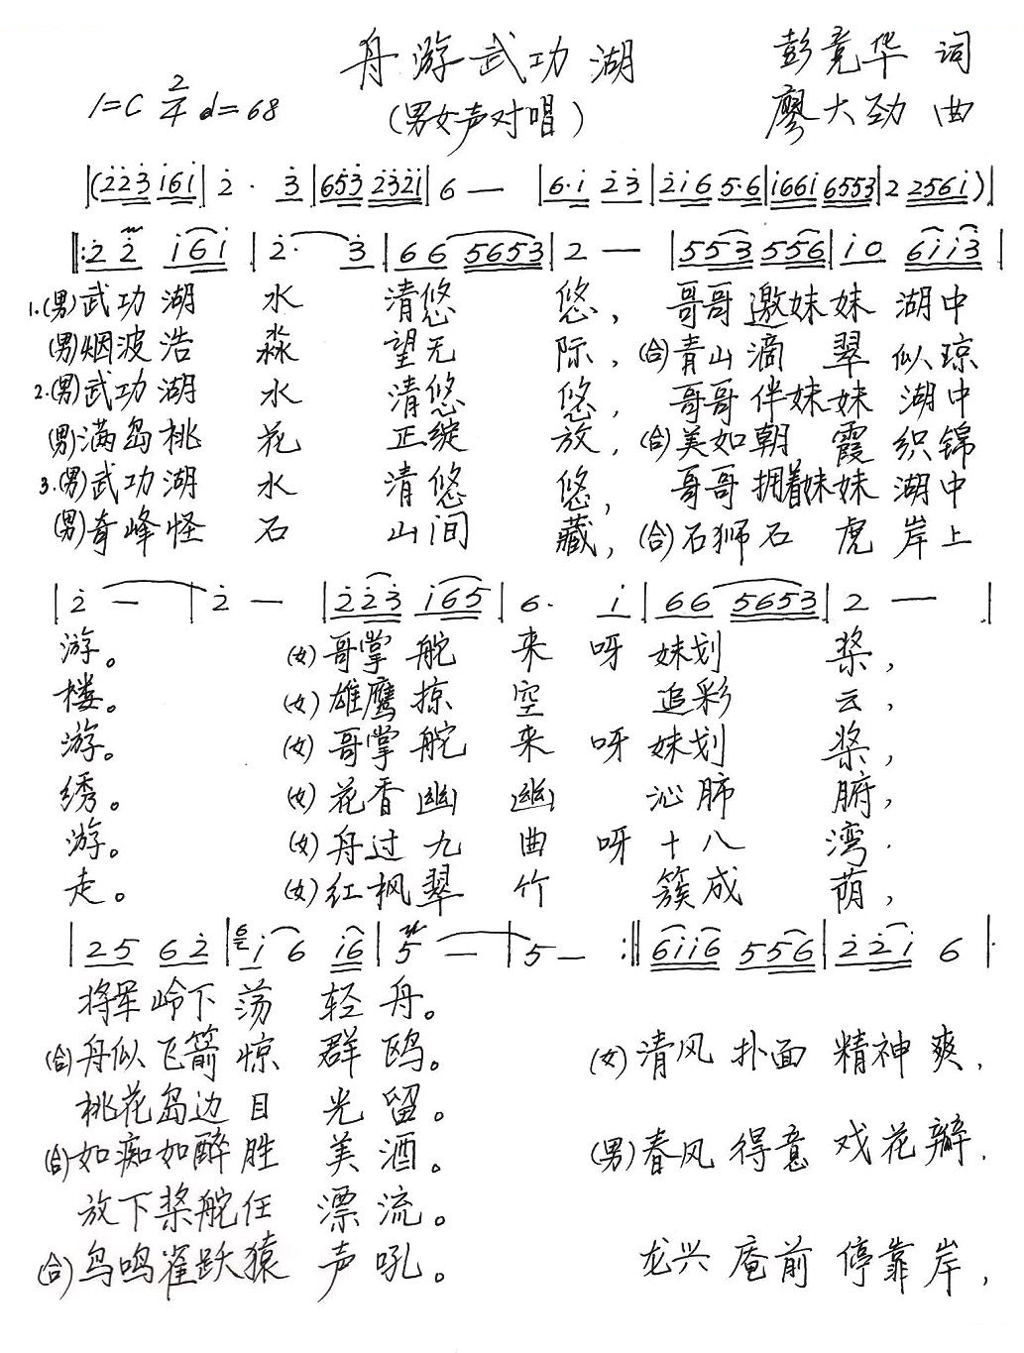 舟游武功湖
彭竟华 词
1=C 2/4 d=68
(男女声对唱)
廖大劲 曲
|(2̇2̇3̇ i̇6i̇| 2̇· 3̇|653̇ 2̇3̇2̇1̇| 6 — |6·i̇ 2̇3̇|2̇i̇6 5·6|i̇66i̇ 6553|2 256i̇)|
‖:2̇ 2̇ i̇6i̇ | 2̇· 3̇ |66 5653| 2 — |553 556| i̇0 6i̇i̇3̇ |
1.(男)武功湖 水 清悠 悠, 哥哥邀妹妹 湖中
(男)烟波浩 淼 望无 际, (合)青山滴 翠 似琼
2.(男)武功湖 水 清悠 悠, 哥哥伴妹妹 湖中
(男)满岛桃 花 正绽 放, (合)美如朝 霞 织锦
3.(男)武功湖 水 清悠 悠, 哥哥拥着妹妹 湖中
(男)奇峰怪 石 山间 藏, (合)石狮石 虎 岸上
| 2̇ — | 2̇ — |2̇2̇3̇ i̇65| 6· i̇ |66 5653| 2 — |
游。 (女)哥掌舵 来 呀 妹划 桨,
楼。 (女)雄鹰掠 空 追彩 云,
游。 (女)哥掌舵 来 呀 妹划 桨,
绣。 (女)花香幽 幽 沁肺 腑,
游。 (女)舟过九 曲 呀 十八 湾.
走。 (女)红枫翠 竹 簇成 荫,
| 25 62̇ | i̇ 6 i̇6 | 5 — | 5 — :‖6i̇i̇6 556|2̇2̇i̇ 6 |
将军岭下荡 轻舟。
(合)舟似飞箭惊 群鸥。 (女)清风扑面 精神爽,
桃花岛边目 光留。
(合)如痴如醉胜 美酒。 (男)春风得意 戏花瓣.
放下桨舵任 漂流。
(合)鸟鸣雀跃猿 声吼。 龙兴庵前 停靠岸,